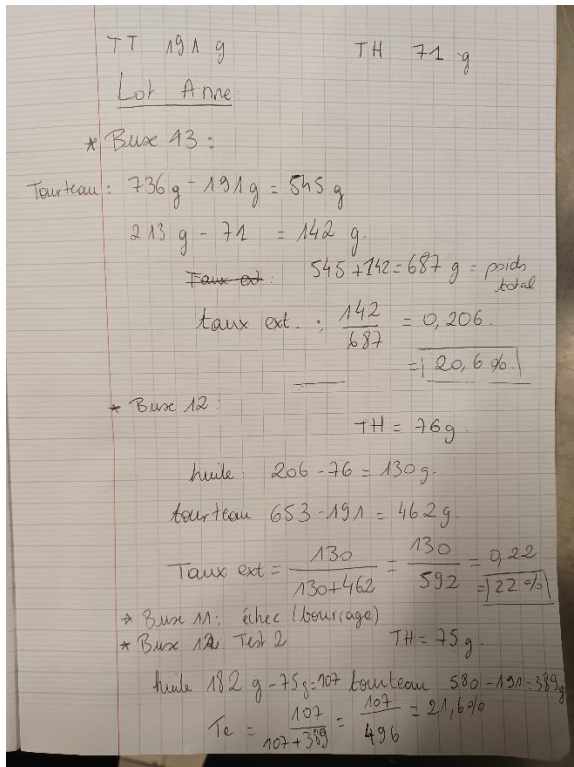 TT 191 g TH 71 g
Lot Anne
* Buse 13 :
Tourteau : 736 g - 191 g = 545 g
213 g - 71 = 142 g.
Taux ext : 545 + 142 = 687 g = poids total
taux ext. : 142/687 = 0,206.
= 20,6 %.
* Buse 12 :
TH = 76 g.
huile : 206 - 76 = 130 g.
tourteau 653 - 191 = 462 g.
Taux ext = 130/130+462 = 130/592 = 0,22
= 22 %
* Buse 11 : échec (bourrage)
* Buse 12 Test 2 TH = 75 g.
huile 182 g - 75 g = 107 tourteau 580 - 191 = 389 g
Te = 107/107+389 = 107/496 = 21,6 %